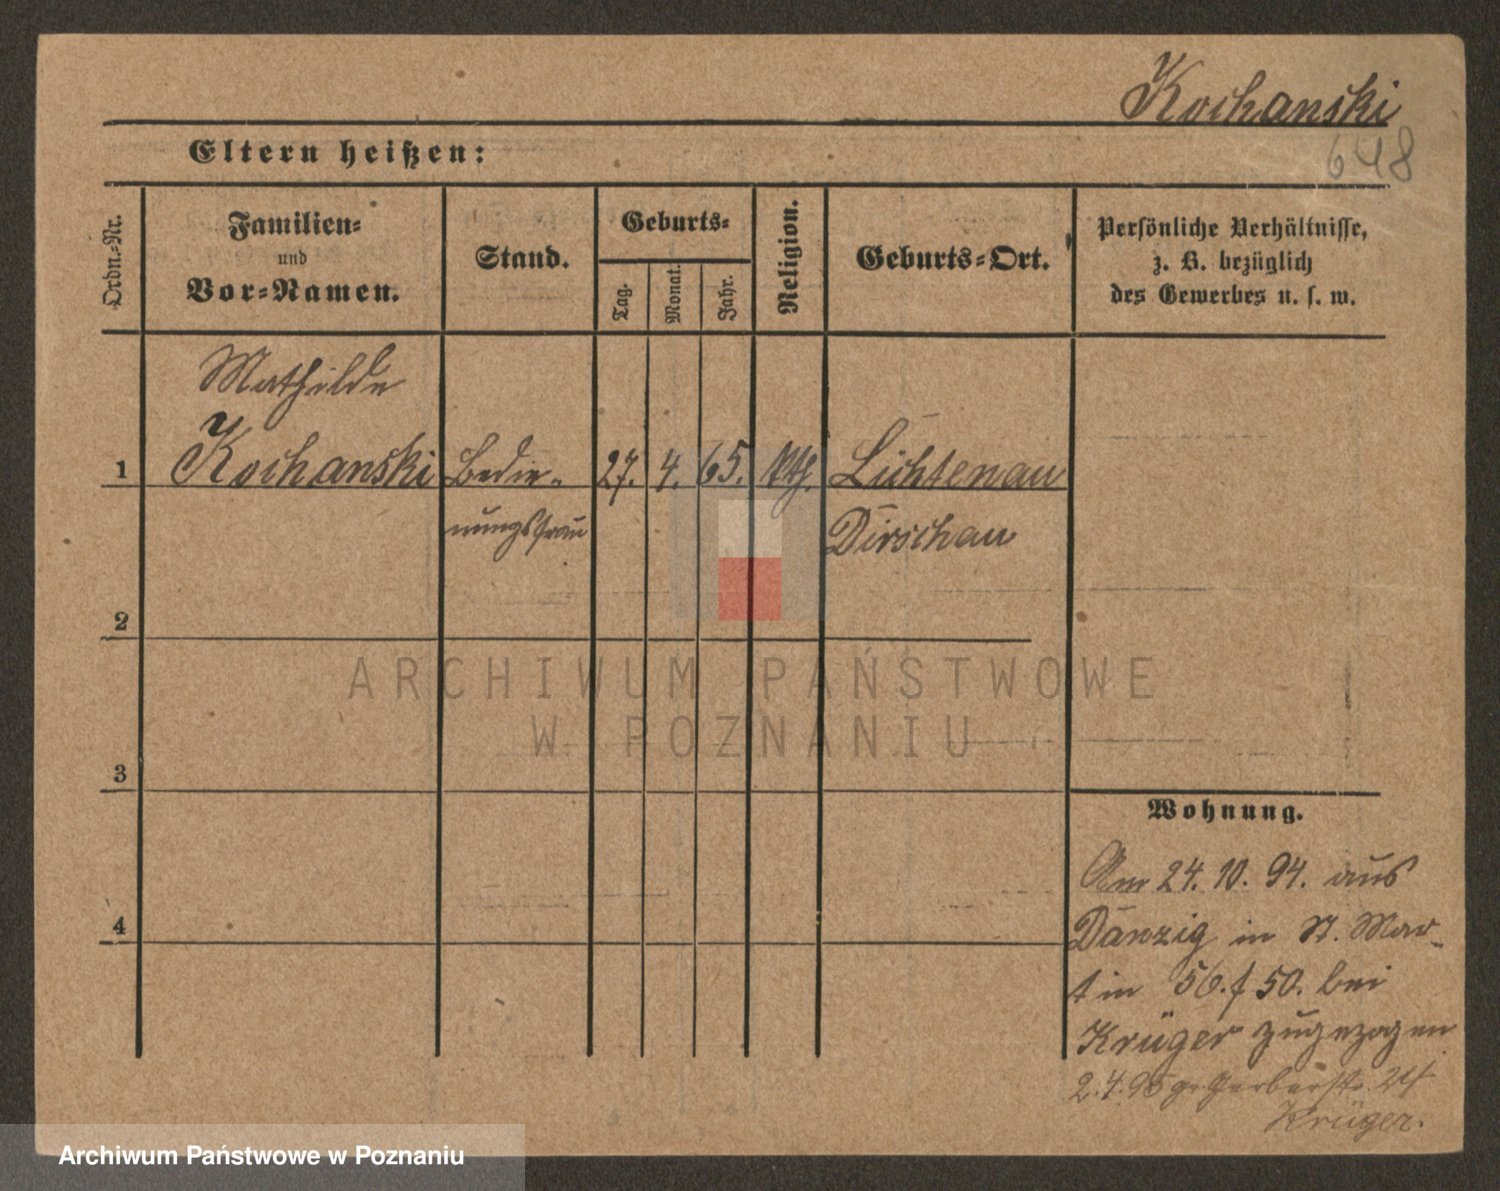 Kochanski
648
Eltern heißen:
Ordn.-Nr.
Familien-
und
Vor-Namen.
Stand.
Geburts-
Tag.
Monat.
Jahr.
Religion.
Geburts-Ort.
Persönliche Verhältnisse,
z. B. bezüglich
des Gewerbes u. s. w.
Mathilde
1 Kochanski Bedie- 27. 4. 65. kth. Lichtenau
nungsfrau Dirschau
2
ARCHIWUM PAŃSTWOWE
W POZNANIU
3
Wohnung.
Am 24. 10. 94. aus
4
Danzig in St. Mar-
tin 56. f 50. bei
Krüger zugezogen
2.4.95 gr Gerberstr.
Krüger.
Archiwum Państwowe w Poznaniu